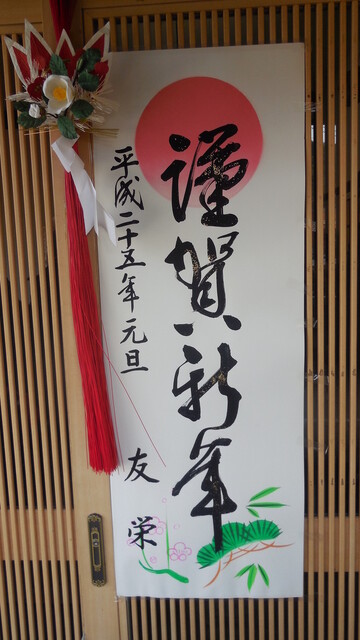 謹賀新年
平成二十五年元旦
友栄